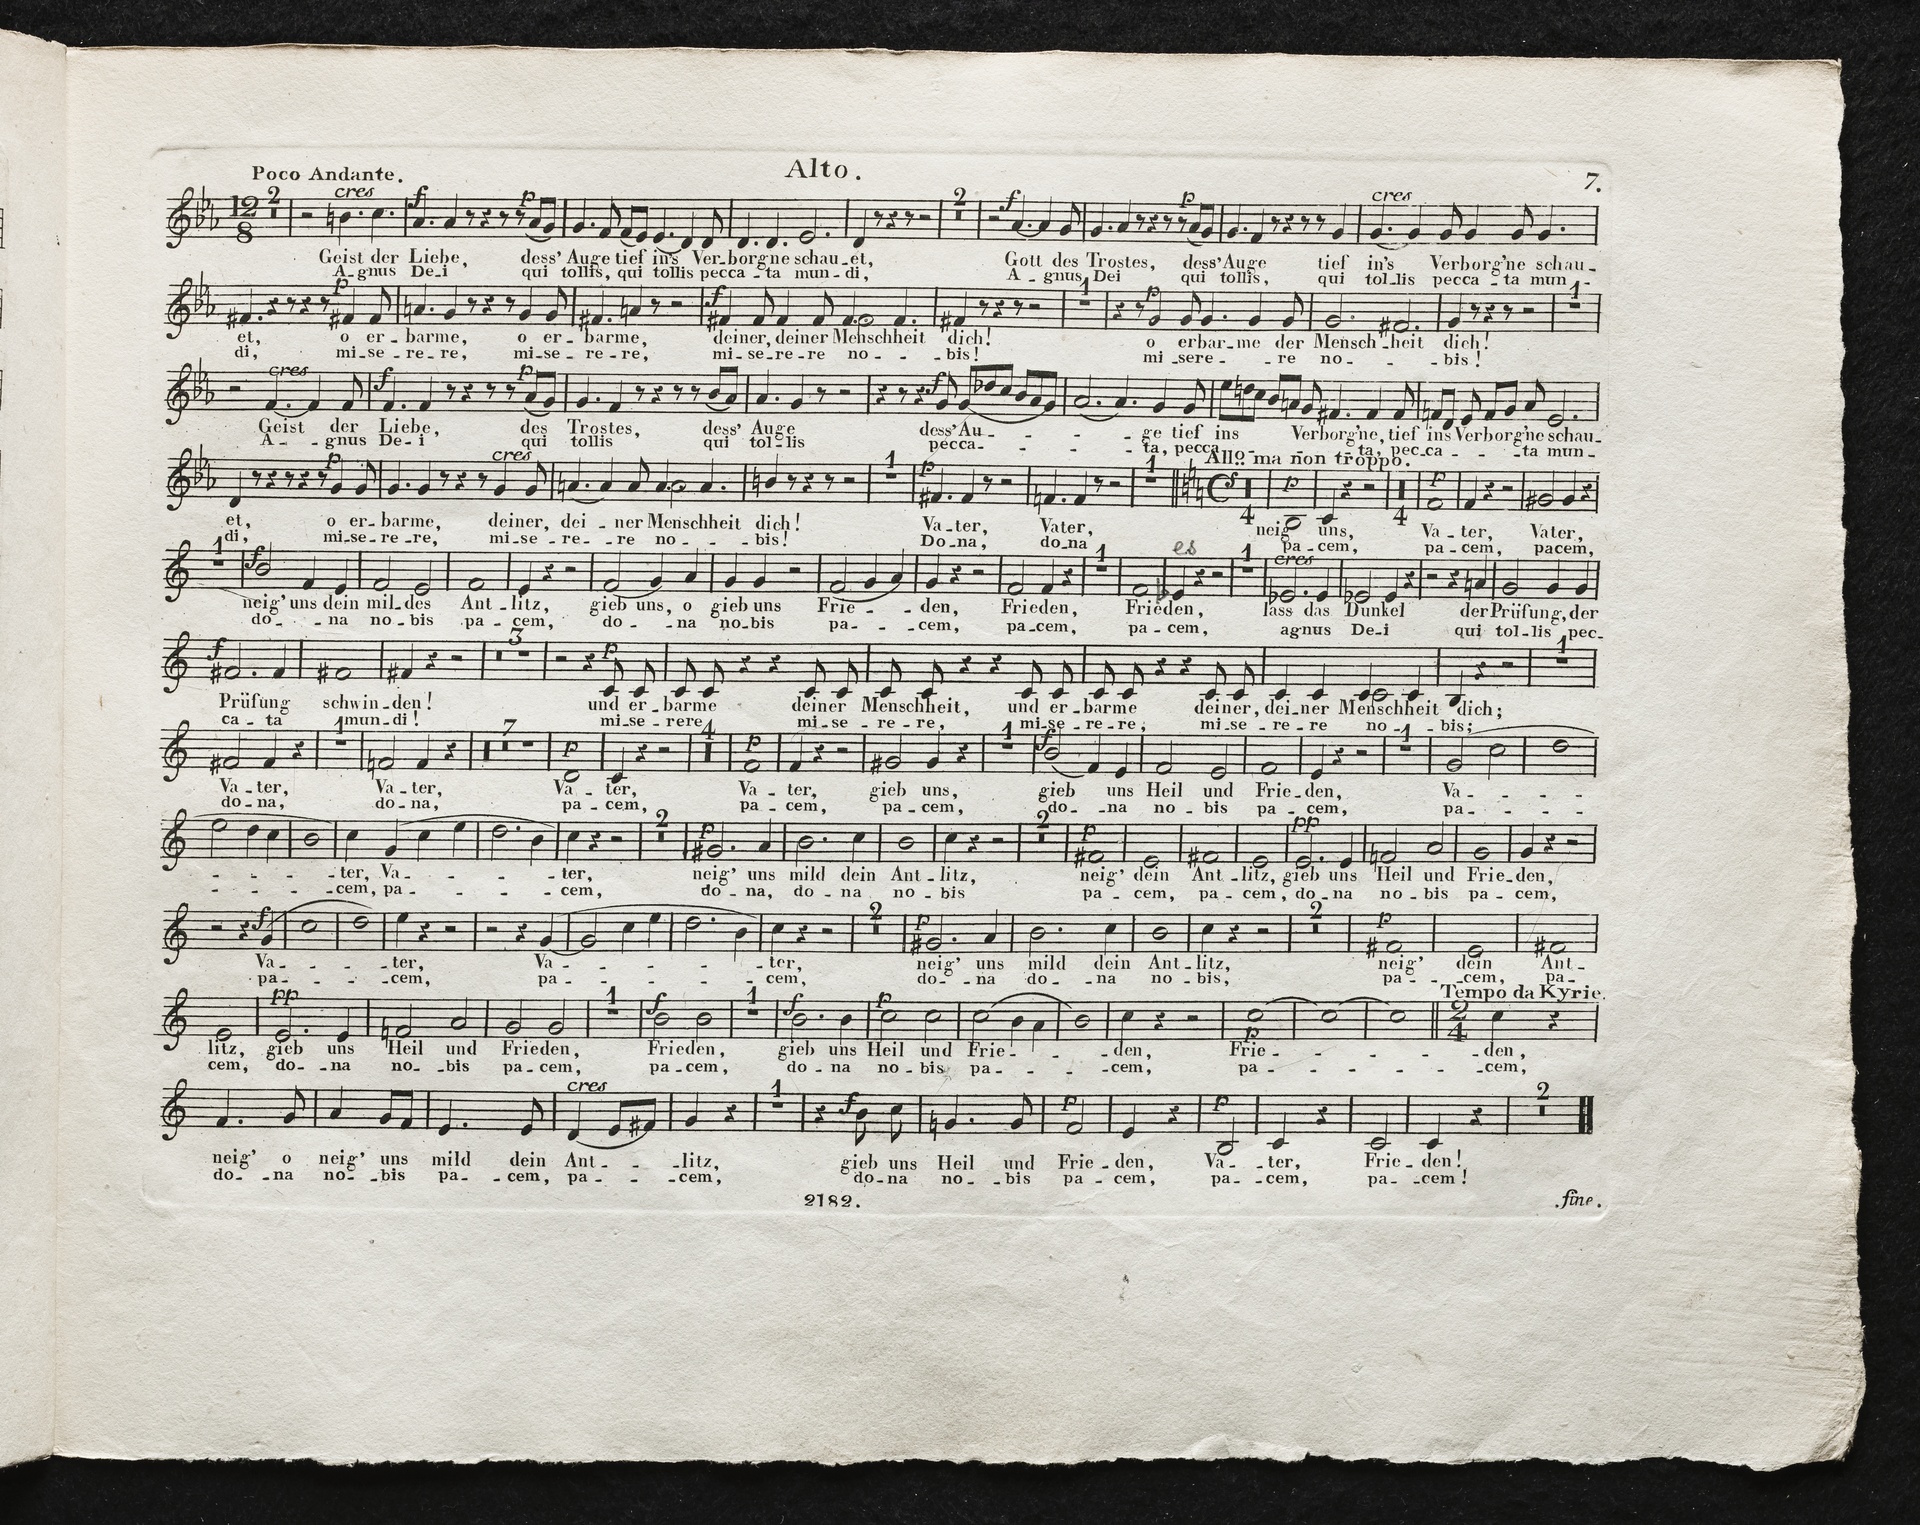 Alto.
7.
Poco Andante.
2 cres f p 2 f p cres
12 8
Geist der Liebe, dess' Auge tief in's Ver-borgne schau-et, Gott des Trostes, dess' Auge tief in's Verborg'ne schau-
A-gnus De-i qui tollis, qui tollis pecca-ta mun-di, A-gnus Dei qui tollis, qui tol-lis pecca-ta mun-
p f 1 p 1
et, o er-barme, o er-barme, deiner, deiner Menschheit dich! o erbar-me der Mensch-heit dich!
di, mi-se-re-re, mi-se-re-re, mi-se-re-re no--bis! mi sere--re no--bis!
cres f p f
Geist der Liebe, des Trostes, dess' Auge dess' Au----ge tief ins Verborg'ne, tief ins Verborg'ne schau-
A--gnus De-i qui tollis qui tol-lis pecca----ta, pecca---ta, pec-ca--ta mun-
p cres 1 p 1 Allo: ma non troppo.
4 p 4 p
et, o er-barme, deiner, dei-ner Menschheit dich! Va-ter, Vater, neig' uns, Va-ter, Vater,
di, mi-se-re-re, mi-se-re--re no--bis! Do-na, do-na pa-cem, pa-cem, pacem,
1 f 1 es 1 cres
neig' uns dein mil-des Ant-litz, gieb uns, o gieb uns Frie---den, Frieden, Frieden, lass das Dunkel der Prüfung, der
do--na no-bis pa-cem, do--na no-bis pa---cem, pa-cem, pa-cem, agnus De-i qui tol-lis pec-
f 3 p 1
Prüfung schwin-den! und er-barme deiner Menschheit, und er-barme deiner, dei-ner Menschheit dich;
ca-ta mun-di! mi-se-rere mi-se-re-re, mi-se-re-re, mi-se-re-re no--bis;
1 7 p 4 p 1 f 1
Va-ter, Va-ter, Va-ter, Va-ter, gieb uns, gieb uns Heil und Frie-den, Va---
do-na, do-na, pa-cem, pa-cem, pa-cem, do--na no-bis pa-cem, pa---
2 p 2 p pp
----ter, Va-----ter, neig' uns mild dein Ant-litz, neig' dein Ant-litz, gieb uns Heil und Frie-den,
----cem, pa-----cem, do-na, do-na no-bis pa-cem, pa-cem, do-na no-bis pa-cem,
f 2 p 2 p
Va----ter, Va------ter, neig' uns mild dein Ant-litz, neig' dein Ant-
pa----cem, pa------cem, do--na do-na no-bis, pa--cem, pa-
Tempo da Kyrie.
pp 1 f 1 f p p 2 4
litz, gieb uns Heil und Frieden, Frieden, gieb uns Heil und Frie---den, Frie-----den,
cem, do--na no--bis pa-cem, pa-cem, do-na no-bis pa---cem, pa-----cem,
cres 1 f p p 2
neig' o neig' uns mild dein Ant---litz, gieb uns Heil und Frie-den, Va--ter, Frie-den!
do--na no--bis pa--cem, pa---cem, do-na no--bis pa--cem, pa--cem, pa--cem!
2182.
fine.